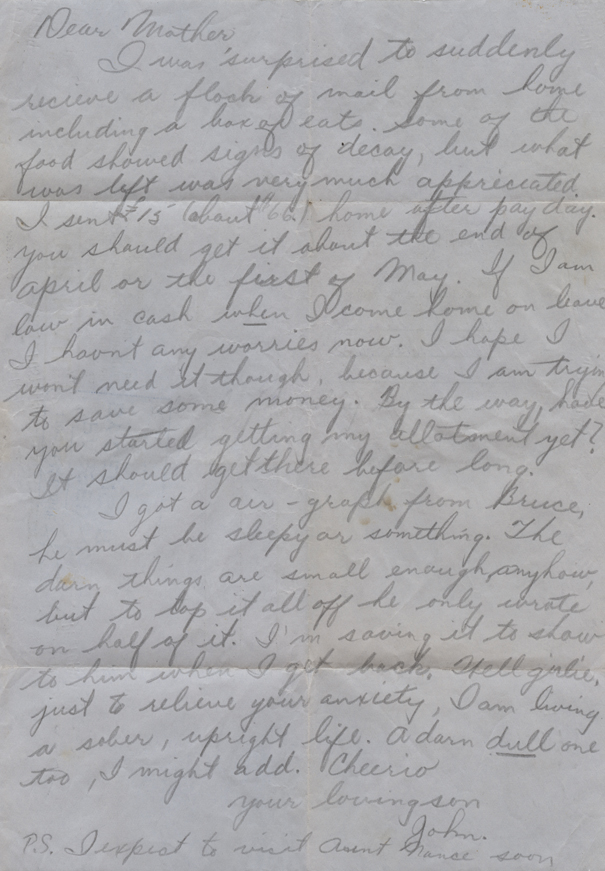 Dear Mother
I was surprised to suddenly
recieve a flock of mail from home
including a box of eats. Some of the
food showed signs of decay, but what
was left was very much appreciated.
I sent £15 (about $66) home after pay day.
you should get it about the end of
April or the first of May. If I am
low in cash when I come home on leave
I havnt any worries now. I hope I
wont need it though, because I am trying
to save some money. By the way, have
you started getting my allotment yet?
It should get there before long.
I got a air-graph from Bruce,
he must be sleepy or something. The
darn things are small enough, anyhow,
but to top it all off he only wrote
on half of it. I'm saving it to show
to him when I get back. Well girlie,
just to relieve your anxiety, I am living
a sober, upright life. A darn dull one
too, I might add. Cheerio
your loving son
John.
P.S. I expect to visit Aunt Nance soon